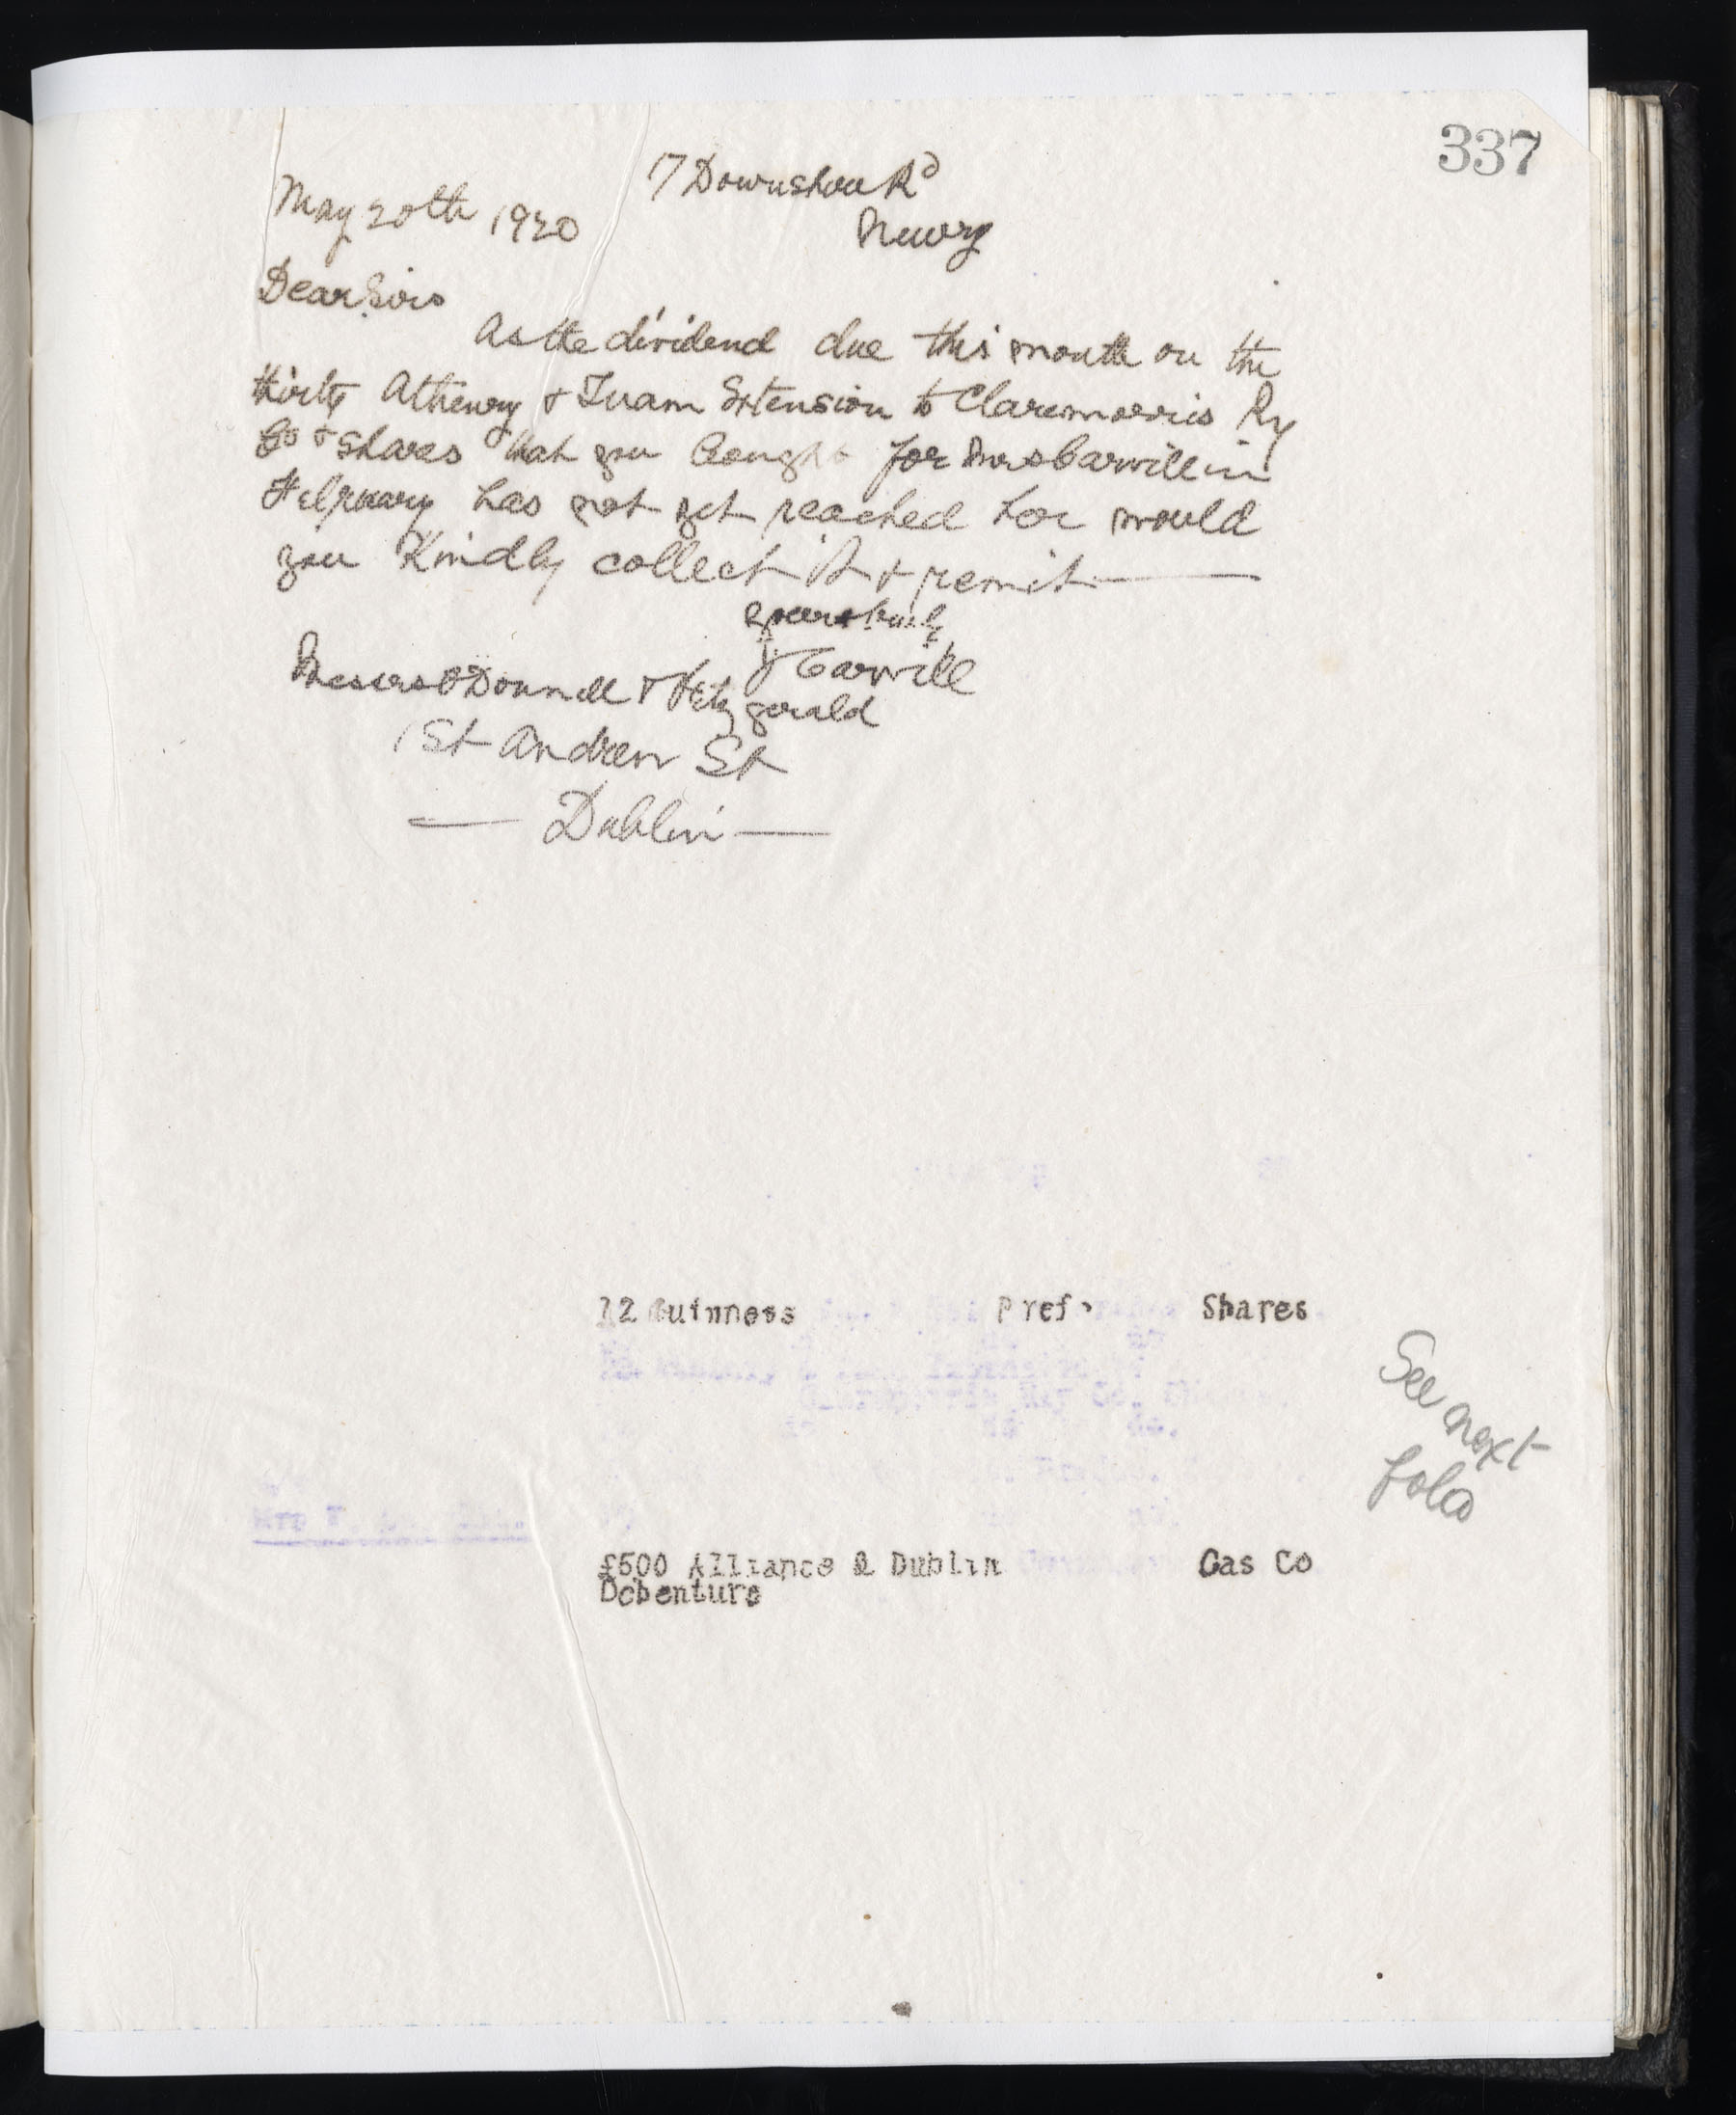 337
17 Downshire Rd
May 20th 1920
Newry
Dear Sirs
As the dividend due this month on the
thirty Athenry & Tuam Extension to Claremorris Ry
Co shares that you bought for Mrs Carvill in
February has not yet reached her would
you Kindly collect it & remit
yours truly
Carvill
Messrs O'Donnell & Fitzgerald
1 St Andrew St
Dublin
12 Guinness Pref. Shares
See next
folio
£500 Alliance & Dublin Gas Co
Debenture